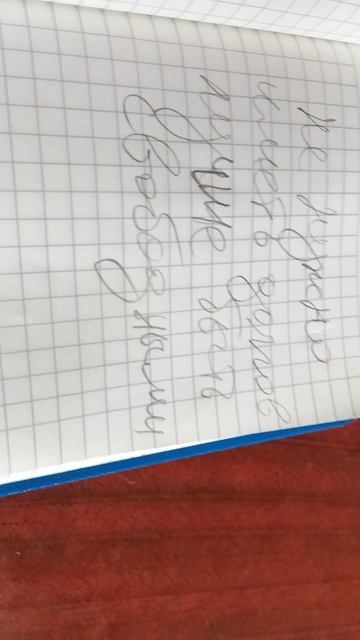 не нужно
иметь долгов
лучше быть
свободными